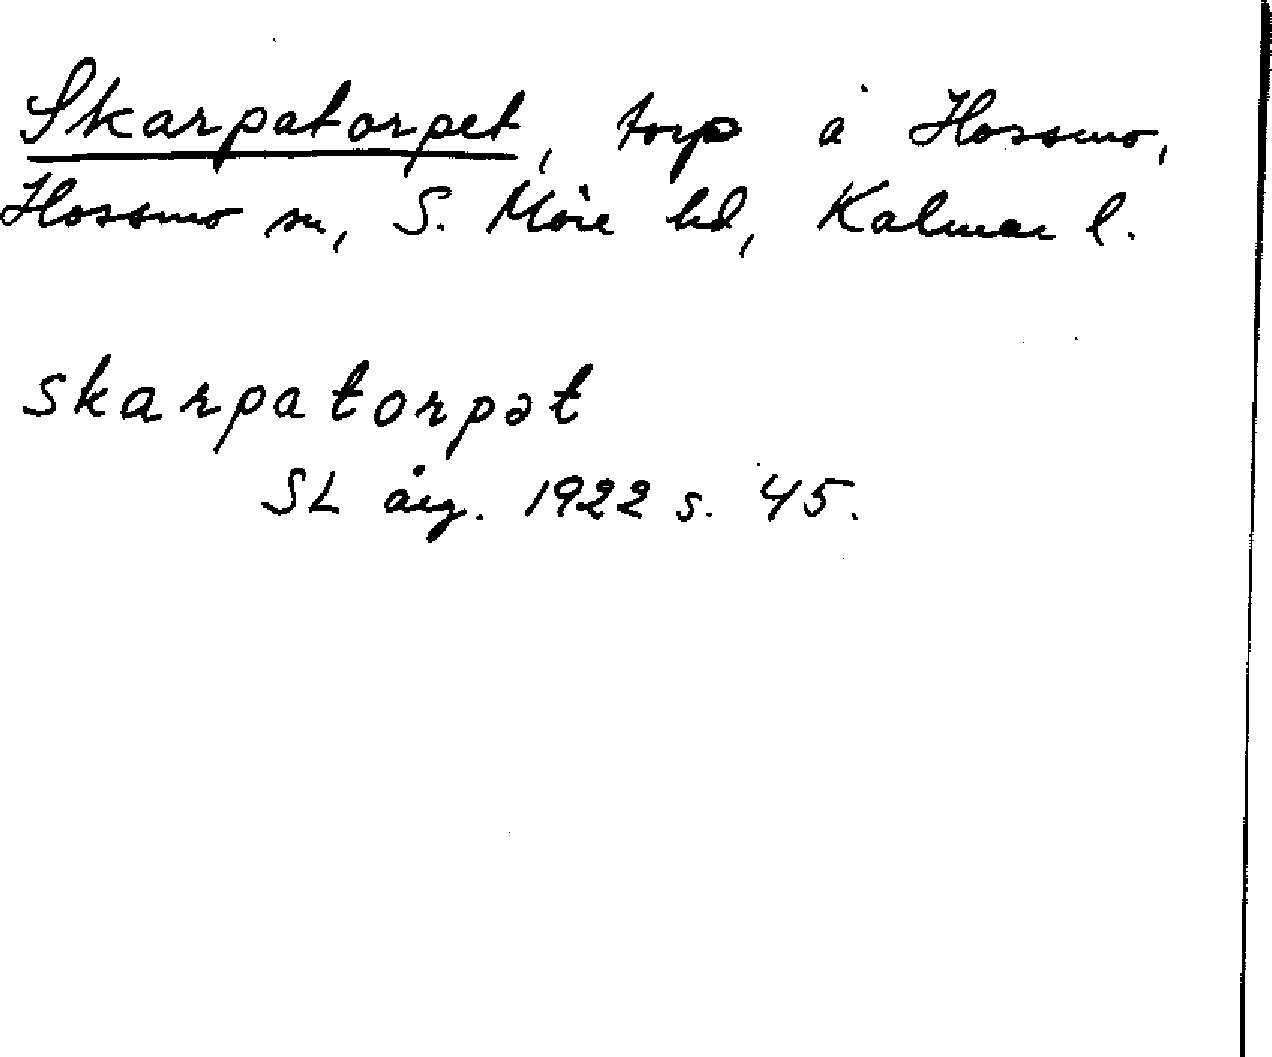 Skarpatorpet, torp å Hossmo,
Hossmo sn, S. Möre hd, Kalmar l.
skarpatorpət
SL årg. 1922 s. 45.